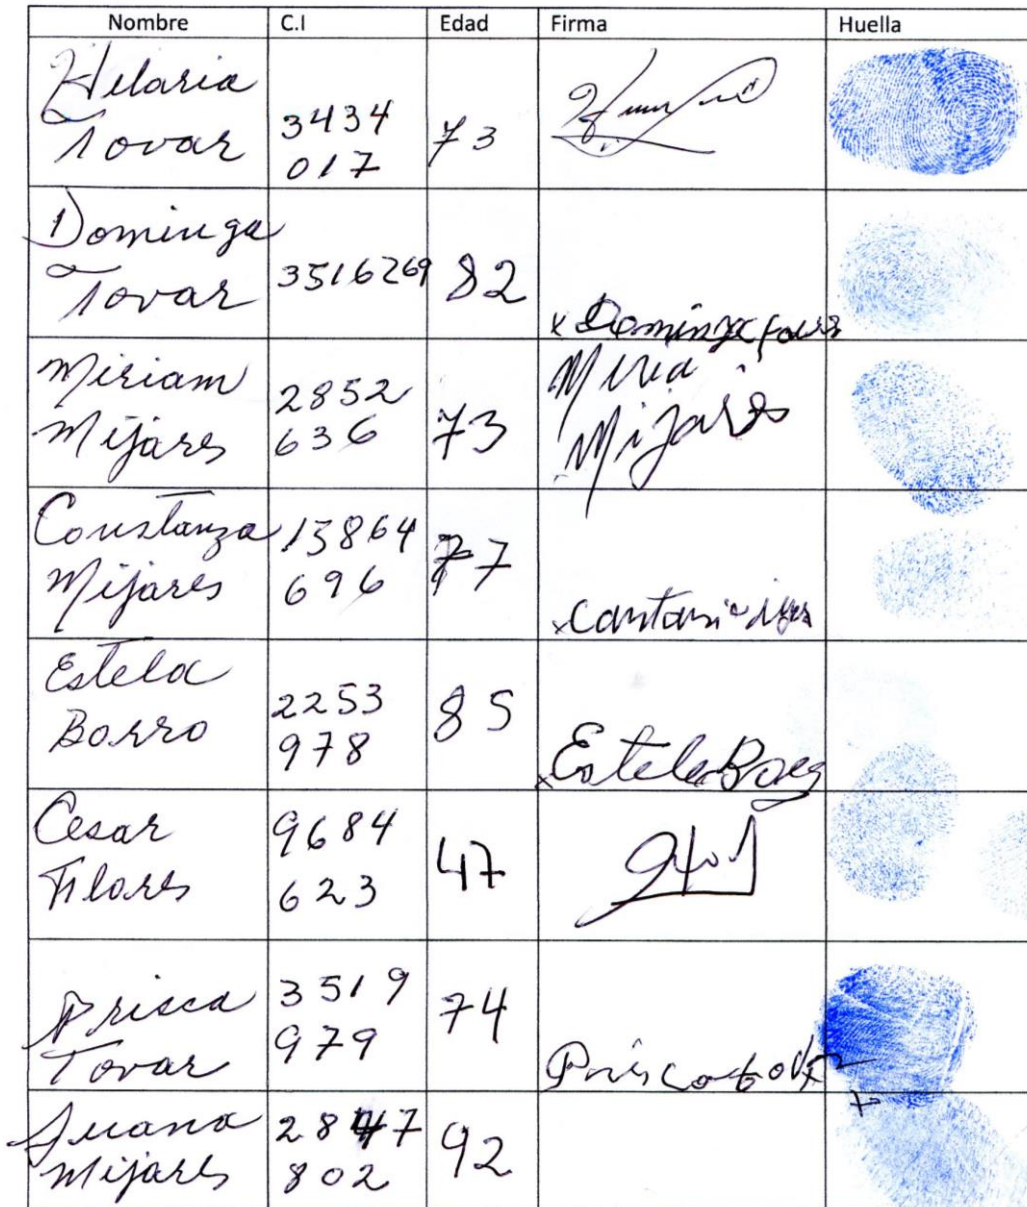 Nombre C.I Edad Firma Huella
Hilaria
Tovar
3434
017
73
Dominga
Tovar
3516269
82
x Dominga
Miriam
Mijares
2852
636
73
Miria
Mijares
Constanza
Mijares
13864
696
77
x
Estela
Borro
2253
978
85
x Estela
Cesar
Flores
9684
623
47
Prisca
Tovar
3519
979
74
Prisca tovar
x
Juana
Mijares
2847
802
92